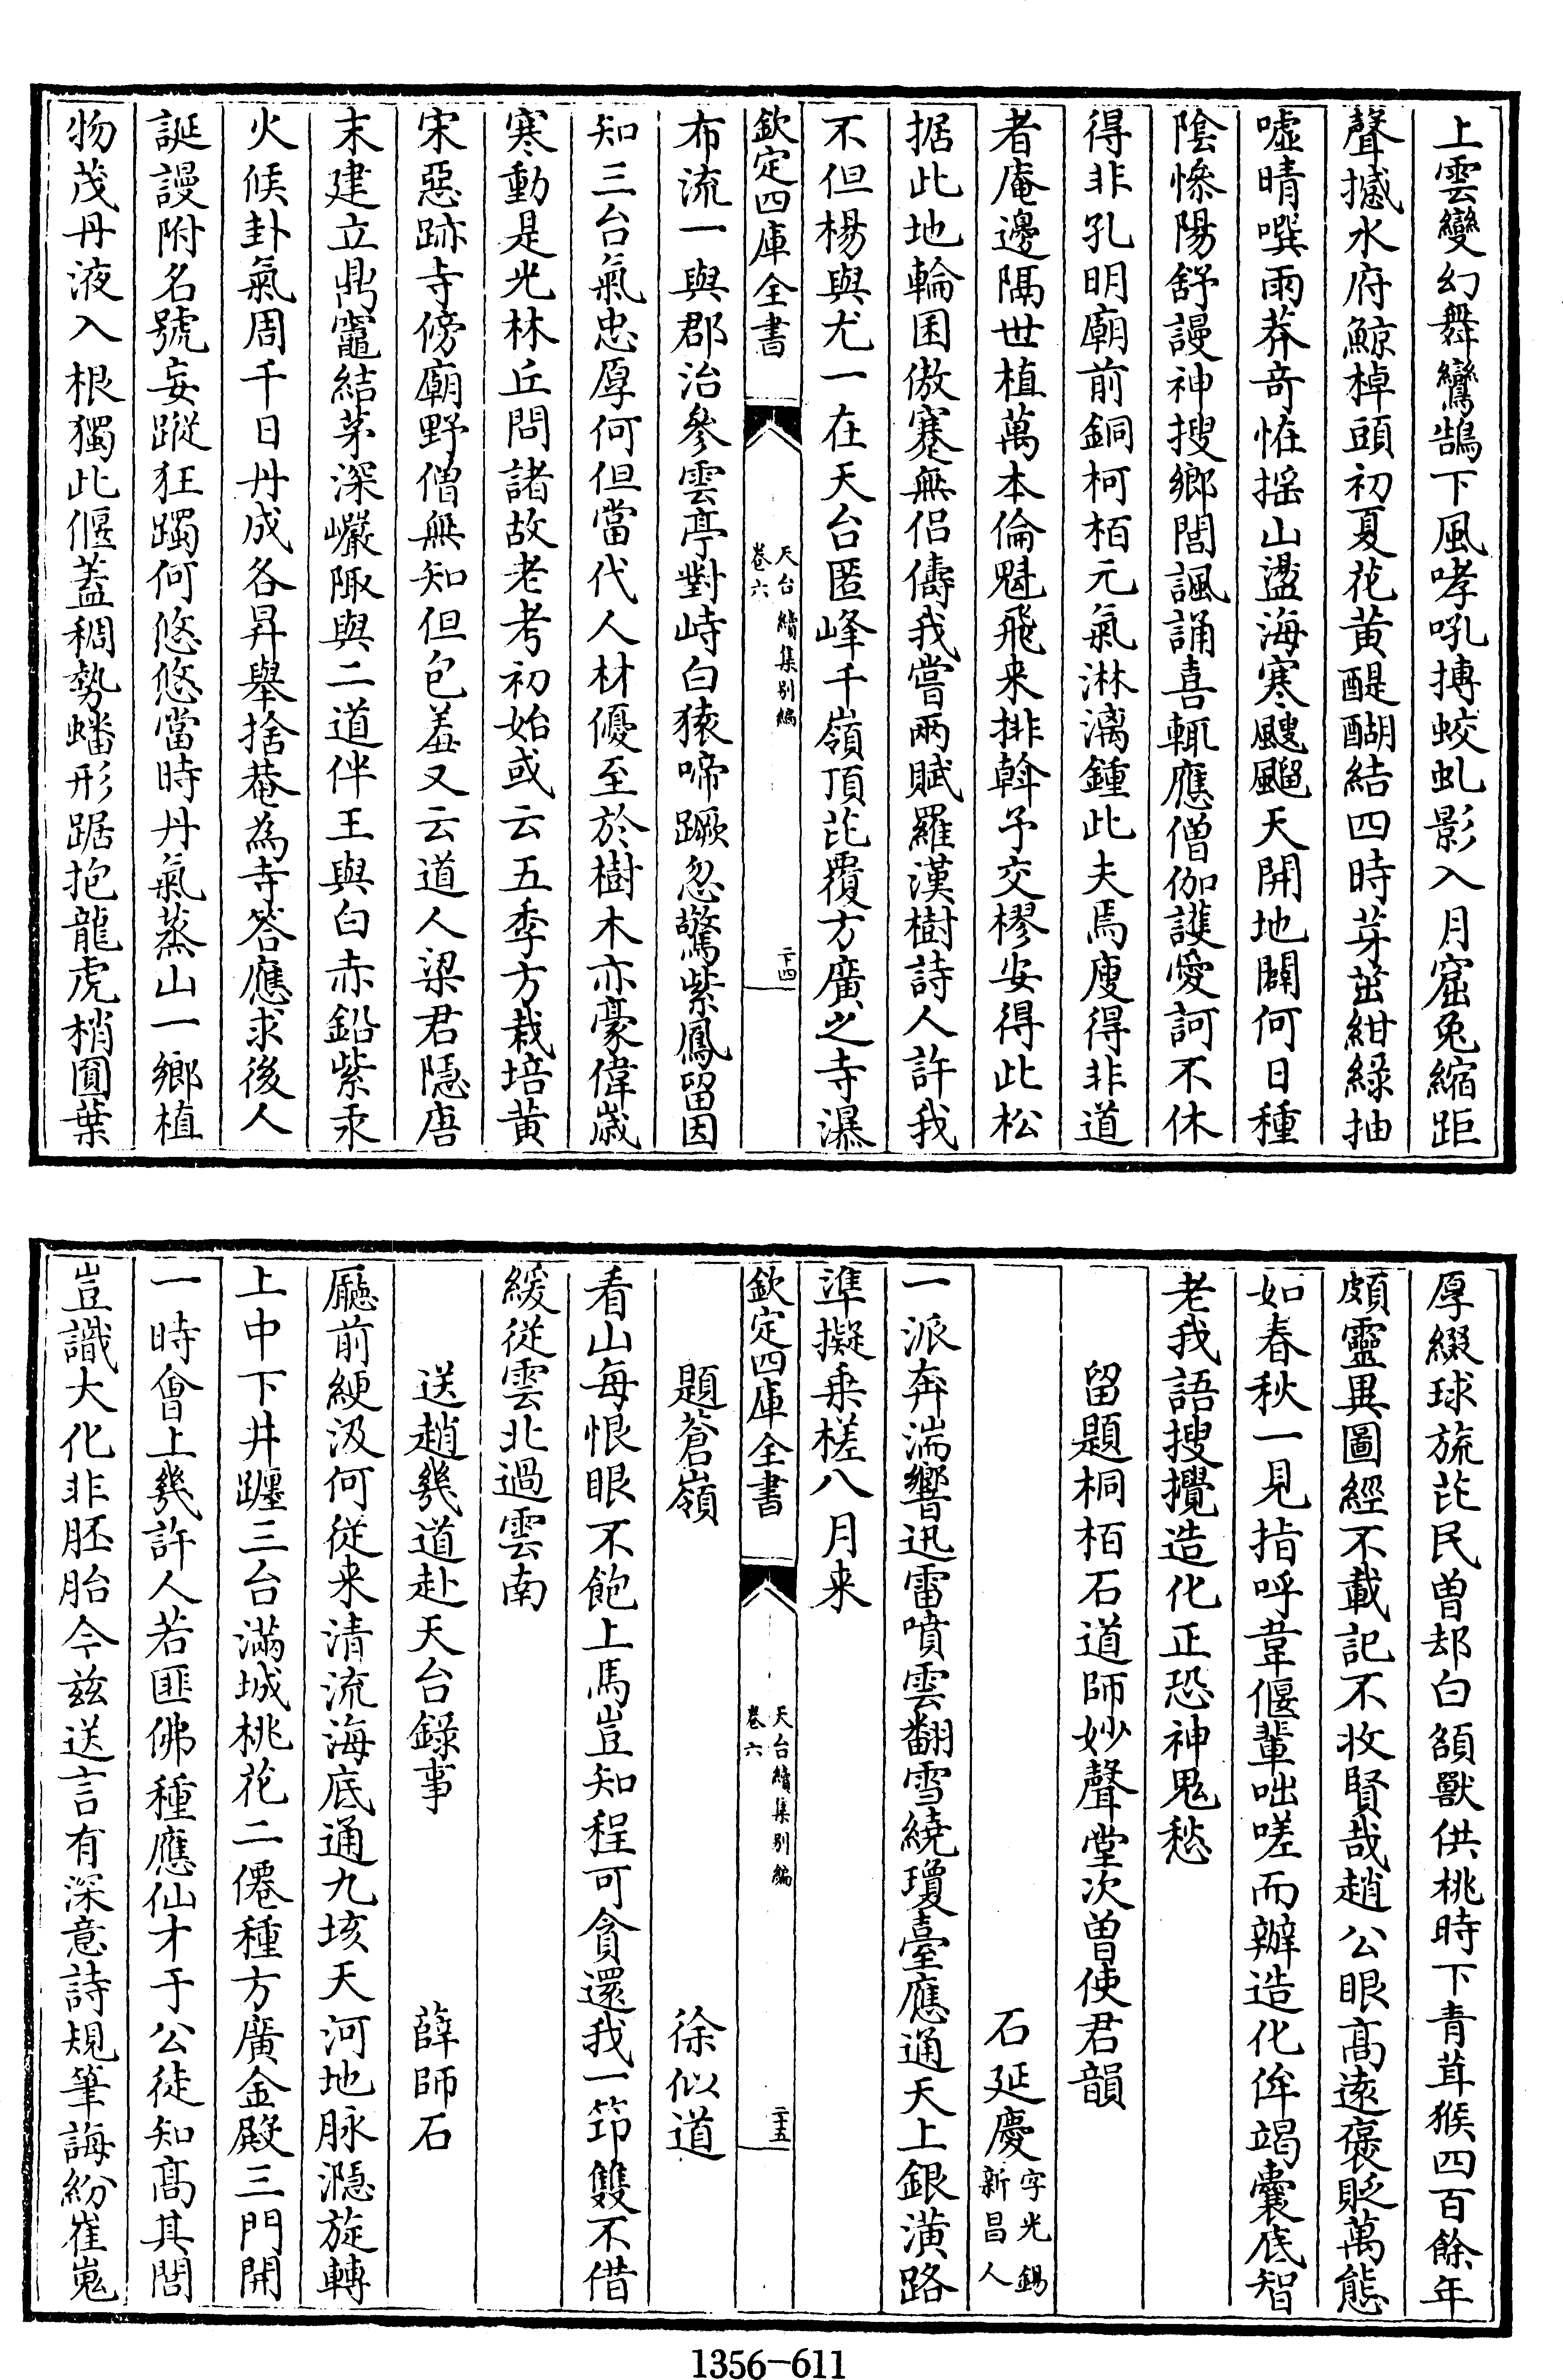 上雲變幻舞鸞鵠下風哮吼搏蛟虬影入月窟兔縮距
聲撼水府鯨棹頭初夏花黄醍醐結四時芽茁紺綠抽
噓晴噀雨莽竒恠揺山盪海寒颼飀天開地闢何日種
陰慘陽舒謾神搜鄉閭諷誦喜輒應僧伽護愛訶不休
得非孔明廟前銅柯栢元氣淋漓鍾此夫焉廋得非道
者庵邊隔世植萬本倫魁飛来排斡予交樛安得此松
据此地輪囷傲蹇無侣儔我嘗兩賦羅漢樹詩人許我
不但楊與尤一在天台匿峰千嶺頂茈覆方廣之寺瀑
欽定四庫全書
天台續集别編
卷六
二十四
布流一與郡治參雲亭對峙白猿啼蹶忽驚紫鳳留因
知三台氣忠厚何但當代人材優至於樹木亦豪偉歲
寒動是光林丘問諸故老考初始或云五季方栽培黄
宋惡跡寺傍廟野僧無知但包羞又云道人梁君隱唐
末建立鼎竈結茅深巗陬與二道伴王與白赤鉛紫汞
火候卦氣周千日丹成各昇舉捨菴為寺答應求後人
誕謾附名號妄蹤狂躅何悠悠當時丹氣蒸山一鄉植
物茂丹液入根獨此偃蓋稠勢蟠形踞抱龍虎梢圓葉
厚綴球旒茈民曽刦白額獸供桃時下青茸猴四百餘年
頗靈異圖經不載記不收賢哉趙公眼髙逺褒貶萬態
如春秋一見指呼韋偃輩咄嗟而辦造化侔竭囊底智
老我語搜攪造化正恐神鬼愁
留題桐栢石道師妙聲堂次曽使君韻
石延慶字光錫
新昌人
一派奔湍響迅雷噴雲翻雪繞瓊臺應通天上銀潢路
準擬乗槎八月来
欽定四庫全書
天台續集别編
卷六
二十五
題蒼嶺
徐似道
看山每恨眼不飽上馬豈知程可貪還我一笻雙不借
緩從雲北過雲南
送趙㡬道赴天台錄事
薛師石
廳前綆汲何従来清流海底通九垓天河地脉濦旋轉
上中下井躔三台滿城桃花二僊種方廣金殿三門開
一時㑹上㡬許人若匪佛種應仙才于公徒知髙其閭
豈識大化非胚胎今兹送言有深意詩規筆誨紛崔嵬
1356-611